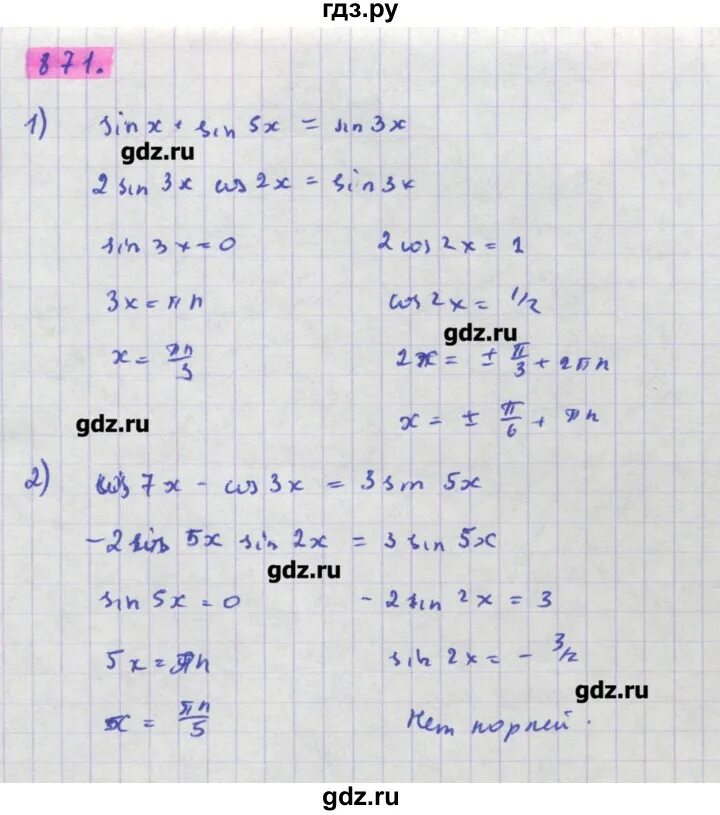 гдз.ру
871.
1) sin x + sin 5x = sin 3x
gdz.ru
2 sin 3x cos 2x = sin 3x
sin 3x = 0 2 cos 2x = 1
3x = πn cos 2x = 1/2
gdz.ru
x = πn/3 2x = ± π/3 + 2πn
gdz.ru x = ± π/6 + πn
2) cos 7x - cos 3x = 3 sin 5x
-2 sin 5x sin 2x = 3 sin 5x
gdz.ru
sin 5x = 0 -2 sin 2x = 3
5x = πn sin 2x = - 3/2
gdz.ru
x = πn/5 Нет корней.
gdz.ru